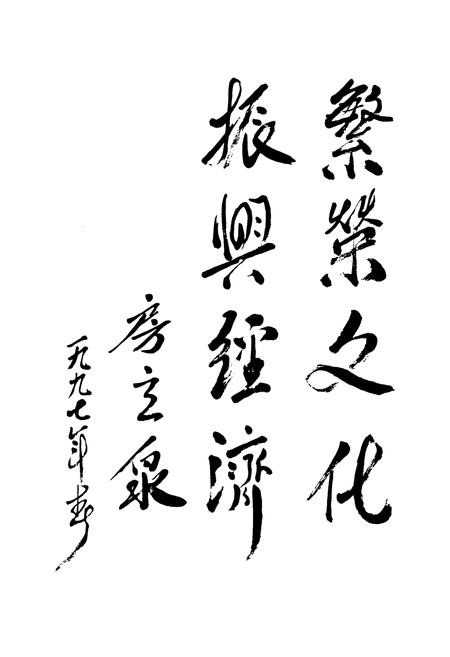 繁榮文化
振興經濟
房立泉
一九九七年春